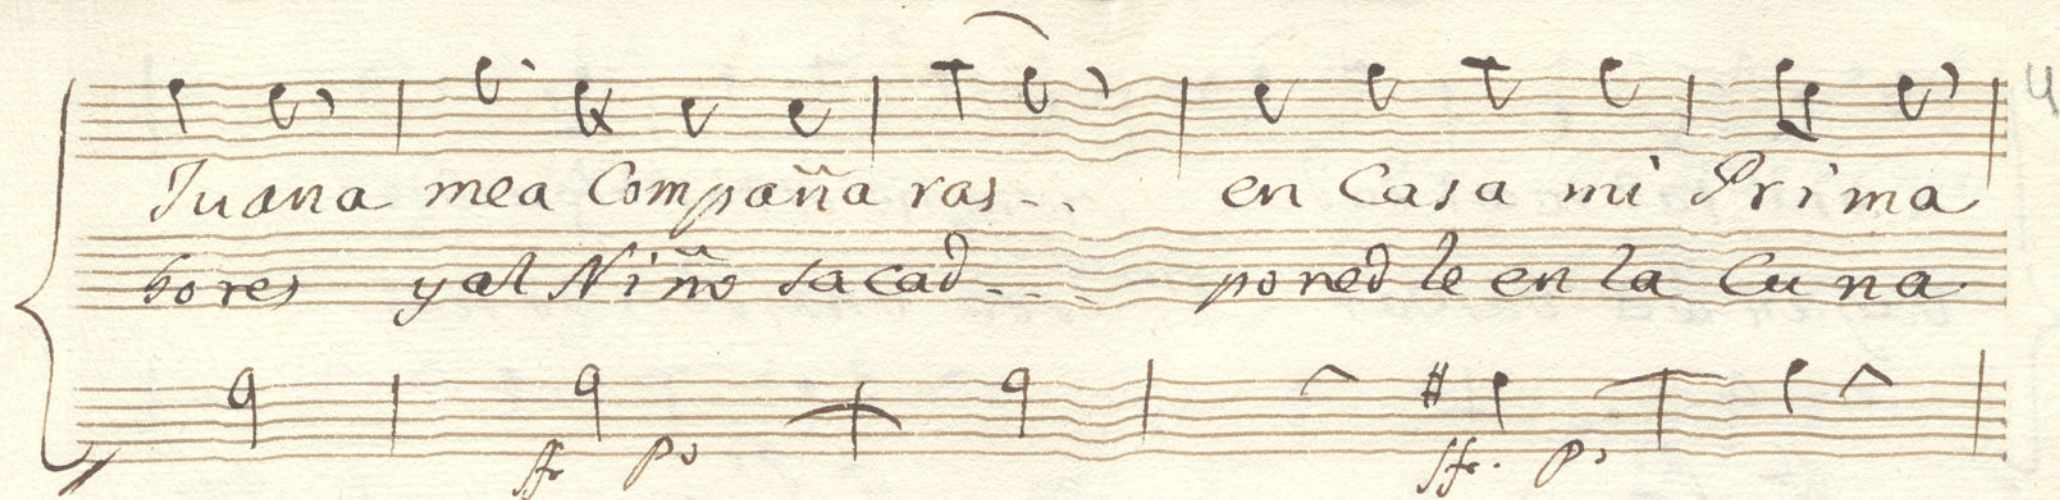 Juana mea Compaña ras - - en Casa mi Prima
bores yal Niño sacad - - - poned le en la Cuna.
sfr po sfr. po